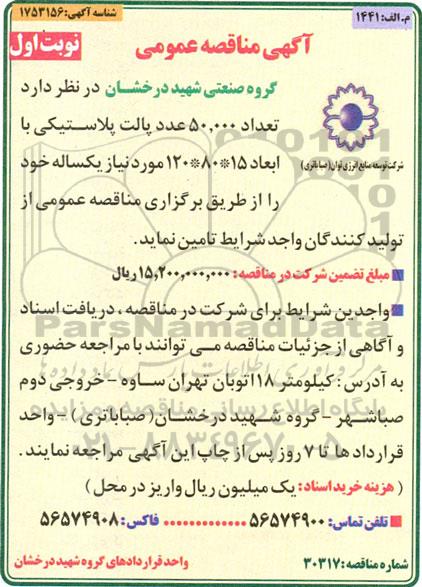 م.الف: ۱۴۴۱
شناسه آگهی: ۱۷۵۳۱۵۶
آگهی مناقصه عمومی
نوبت اول
گروه صنعتی شهید درخشان در نظر دارد
تعداد ۵۰,۰۰۰ عدد پالت پلاستیکی با
ابعاد ۱۵*۸۰*۱۲۰ مورد نیاز یکساله خود
شرکت توسعه منابع انرژی توان (صبا باتری)
را از طریق برگزاری مناقصه عمومی از
تولید کنندگان واجد شرایط تامین نماید.
مبلغ تضمین شرکت در مناقصه: ۱۵,۲۰۰,۰۰۰,۰۰۰ ریال
واجدین شرایط برای شرکت در مناقصه، دریافت اسناد
و آگاهی از جزئیات مناقصه می توانند با مراجعه حضوری
به آدرس: کیلومتر ۱۸ اتوبان تهران ساوه - خروجی دوم
صباشهر - گروه شهید درخشان (صبا باتری) - واحد
قرارداد ها تا ۷ روز پس از چاپ این آگهی مراجعه نمایند.
(هزینه خرید اسناد: یک میلیون ریال واریز در محل)
تلفن تماس: ۵۶۵۷۴۹۰۰ ............ فاکس: ۵۶۵۷۴۹۰۸
شماره مناقصه: ۳۰۳۱۷
واحد قراردادهای گروه شهید درخشان
ParsNamadData
پایگاه اطلاع رسانی مناقصه و مزایده